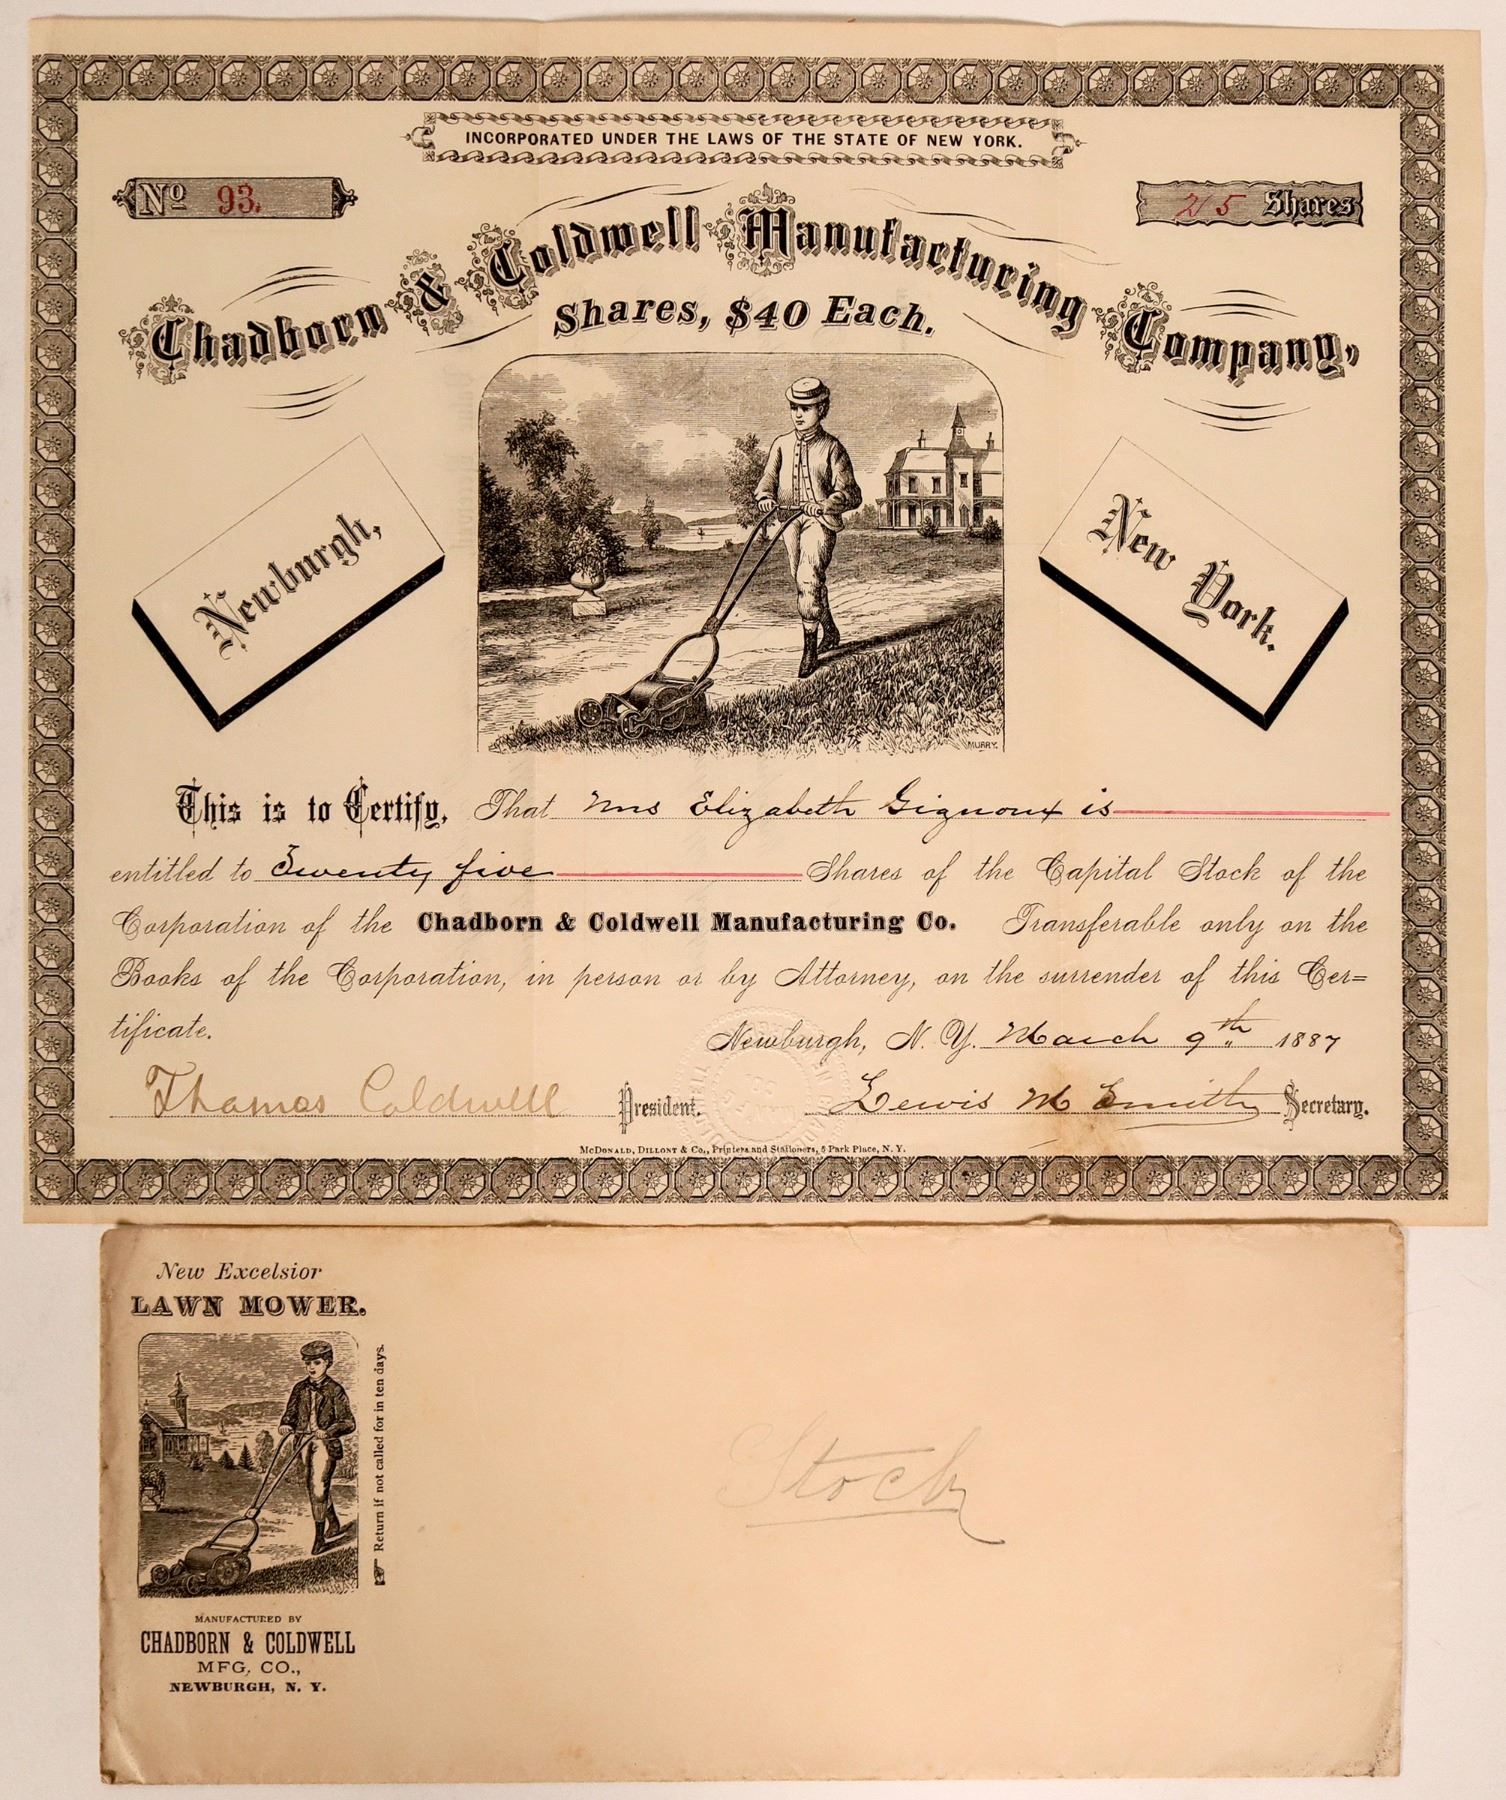 INCORPORATED UNDER THE LAWS OF THE STATE OF NEW YORK.
No 93.
25 Shares
Chadborn & Coldwell Manufacturing Company,
Shares, $40 Each.
Newburgh,
New York.
MURRY.
This is to Certify, That Mrs Elizabeth Gignoux is
entitled to Twenty five Shares of the Capital Stock of the
Corporation of the Chadborn & Coldwell Manufacturing Co. Transferable only on the
Books of the Corporation, in person or by Attorney, on the surrender of this Cer=
tificate.
Newburgh, N. Y. March 9th 1887
Thomas Coldwell President.
Lewis M Smith Secretary.
McDONALD, DILLONT & Co., Printers and Stationers, 5 Park Place, N. Y.
New Excelsior
LAWN MOWER.
Return if not called for in ten days.
Stock
MANUFACTURED BY
CHADBORN & COLDWELL
MFG, CO.,
NEWBURGH, N. Y.